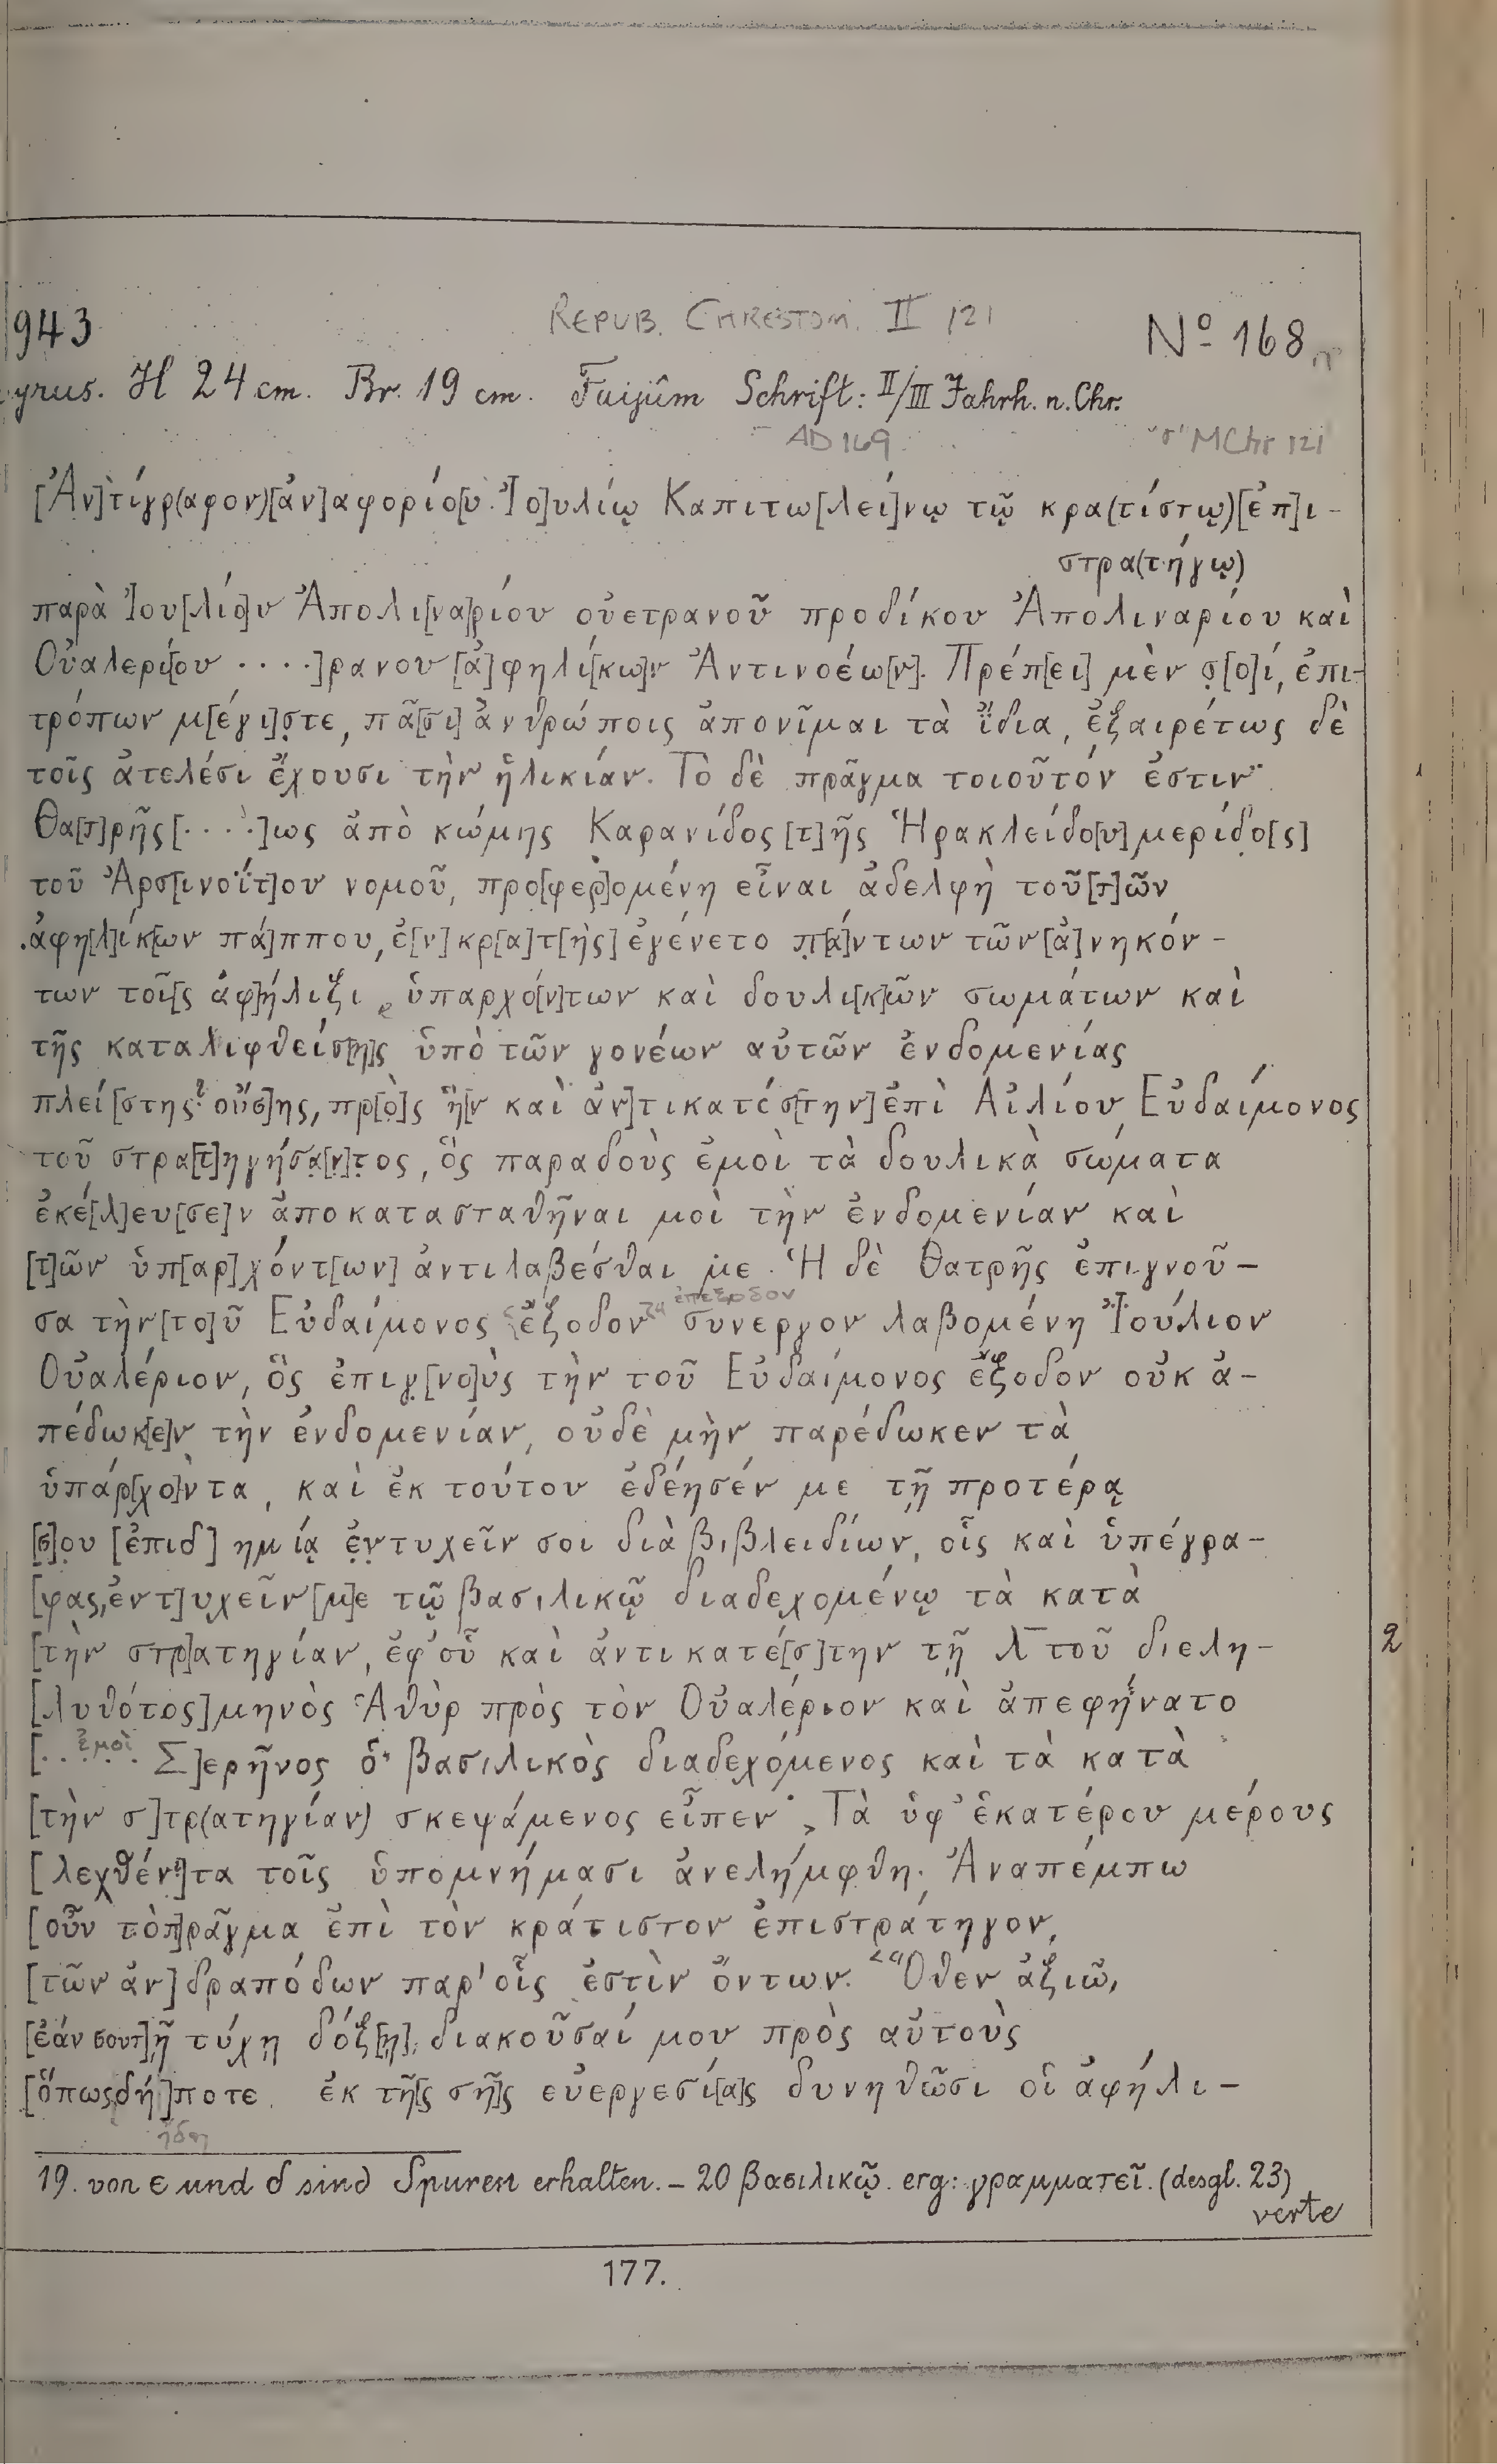 943
REPUB. CHRESTOM. II 121
Nº 168
yrus. H 24 cm. Br. 19 cm. Faijûm Schrift: II/III Jahrh. n. Chr.
AD 169
MChr 121
[Ἀν]τίγρ(αφον)[ἀν]αφορίο[υ. Ἰο]υλίῳ Καπιτω[λεί]νῳ τῷ κρα(τίστῳ)[ἐπ]ι-
στρα(τήγῳ)
παρὰ Ἰου[λίο]υ Ἀπολι[να]ρίου οὐετρανοῦ προδίκου Ἀπολιναρίου καὶ
Οὐαλερ[ίου ....]ρανου [ἀ]φηλί[κω]ν Ἀντινοέω[ν]. Πρέπ[ει] μὲν σ[ο]ί, ἐπι-
τρόπων μ[έγι]στε, πᾶ[σι] ἀνθρώποις ἀπονῖμαι τὰ ἴδια, ἐξαιρέτως δὲ
τοῖς ἀτελέσι ἔχουσι τὴν ἡλικίαν. Τὸ δὲ πρᾶγμα τοιοῦτόν ἐστιν·
Θα[τ]ρῆς [....]ιως ἀπὸ κώμης Καρανίδος [τ]ῆς Ἡρακλείδο[υ] μερίδο[ς]
τοῦ Ἀρσ[ινοΐτ]ου νομοῦ, προ[φερ]ομένη εἶναι ἀδελφὴ τοῦ [τ]ῶν
ἀφη[λ]ίκ[ων πά]ππου, ἐ[ν]κρ[α]τ[ὴς] ἐγένετο π[ά]ντων τῶν [ἀ]νηκόν-
των τοῖ[ς ἀφ]ήλιξι ὑπαρχό[ν]των καὶ δουλι[κ]ῶν σωμάτων καὶ
τῆς καταλιφθείσ[η]ς ὑπὸ τῶν γονέων αὐτῶν ἐνδομενίας
πλεί[στης? οὔσ]ης, πρ[ὸ]ς ἣ[ν καὶ ἀν]τικατέσ[την] ἐπὶ Αἰλίου Εὐδαίμονος
τοῦ στρα[τ]ηγήσα[ν]τος, ὃς παραδοὺς ἐμοὶ τὰ δουλικὰ σώματα
ἐκέ[λ]ευ[σε]ν ἀποκατασταθῆναι μοὶ τὴν ἐνδομενίαν καὶ
[τ]ῶν ὑπ[αρ]χόντ[ων] ἀντιλαβέσθαι με. Ἡ δὲ Θατρῆς ἐπιγνοῦ-
ἐπεξοδον
σα τὴν [το]ῦ Εὐδαίμονος ἔξοδον συνεργον λαβομένη Ἰούλιον
Οὐαλέριον, ὃς ἐπιγ[νο]ὺς τὴν τοῦ Εὐδαίμονος ἔξοδον οὐκ ἀ-
πέδωκ[ε]ν τὴν ἐνδομενίαν, οὐδὲ μὴν παρέδωκεν τὰ
ὑπάρ[χο]ντα, καὶ ἐκ τούτου ἐδέησέν με τῇ προτέρᾳ
[σ]ου [ἐπιδ]ημίᾳ ἐντυχεῖν σοι διὰ βιβλειδίων, οἷς καὶ ὑπέγρα-
[ψας, ἐντ]υχεῖν [μ]ε τῷ βασιλικῷ διαδεχομένῳ τὰ κατὰ
[τὴν στρ]ατηγίαν, ἐφ' οὗ καὶ ἀντικατέ[σ]την τῇ λ̅ τοῦ διελη-
2
[λυθότος] μηνὸς Ἁθὺρ πρὸς τὸν Οὐαλέριον καὶ ἀπεφήνατο
ἐμοὶ
[..... Σ]ερῆνος ὁ βασιλικὸς διαδεχόμενος καὶ τὰ κατὰ
[τὴν σ]τρ(ατηγίαν) σκεψάμενος εἶπεν· „Τὰ ὑφ' ἑκατέρου μέρους
[λεχθέν]τα τοῖς ὑπομνήμασι ἀνελήμφθη. Ἀναπέμπω
[οὖν τὸ π]ρᾶγμα ἐπὶ τὸν κράτιστον ἐπιστράτηγον,
[τῶν ἀν]δραπόδων παρ' οἷς ἐστὶν ὄντων." Ὅθεν ἀξιῶ,
[ἐάν σου τ]ῇ τύχῃ δόξ[ῃ], διακοῦσαί μου πρὸς αὐτοὺς
[ὅπως δή]ποτε ἐκ τῆ[ς σῆ]ς εὐεργεσί[α]ς δυνηθῶσι οἱ ἀφήλι-
ἤδη
19. von ε und δ sind Spuren erhalten. – 20 βασιλικῷ. erg: γραμματεῖ. (desgl. 23)
verte
177.